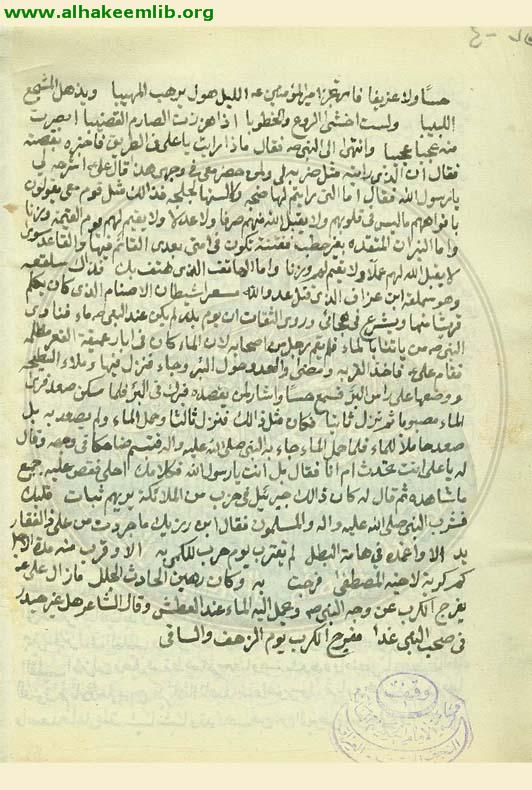 www.alhakeemlib.org
حسا ولا عزيفا فاستقر امير المؤمنين عه الليل هول يرهب المهيبا ويذهل المشجع
اللبيبا ولست اخشى الروع والخطوبا اذا هززت الصارم القضيبا ابصرت
منه عجبا عجيبا وانتهى الى النبي صه فقال ماذا رايت يا علي في الطريق فاخبره بقصته
فقال ان الذي رايته مثل ضربه لي ولمن حضر معي في وجهي هذا قال علي اشرحه لي
يا رسول الله فقال اما التي رايتم لها ضجه ولالسنها لجلجه فذلك مثل قوم معي يقولون
بافواههم ما ليس في قلوبهم ولا يقبل الله منهم صرفا ولا عدلا ولا يقيم لهم يوم القيمة وزنا
واما النيران المتقده بغير حطب ففتنة تكون في امتي بعدي القائم فيها والقاعد سوى
لا يقبل الله لهم عملا ولا يقيم لهم وزنا واما الهاتف الذي هتف بك فذاك سلقعه
وهو سملقة ابن عزاف الذي قتل عدو الله مسعر شيطان الاصنام الذي كان يكلم
قريشا منها ويشرع في هجائي وروى الثقات ان يوم بدر لم يكن عند النبي صه ماء فنادى
النبي صه من ياتينا بالماء فلم يقم رجل من اصحابه لان الماء كان في ابار عميقة القعر مظلمه
فقام علي فاخذ القربه ومضى والعدو حول البئر وجاء فنزل فيها وملاء السطيحه
ووضعها على راس البئر فسمع حسا واشار لمن يقصده فبرك في البئر فلما سكن صعد فرى
الماء مصبوبا ثم نزل ثانيا فكان مثل ذالك فنزل ثالثا وحمل الماء ولم يصعد به بل
صعد حاملا للماء فلما حمل الماء جاء به النبي صلى الله عليه واله فتبسم ضاحكا في وجهه وقال
له يا علي انت تحدث ام انا فقال بل انت يا رسول الله فكلامك احلى فقص عليه جميع
ما شاهده ثم قال له كان ذالك جبرئيل في حزب من الملائكة يريهم ثبات قلبك
فشرب النبي صلى الله عليه واله والمسلمون فقال ابن رزيك ما جردت من علي ذا الفقار
يد الا واغمده في هامة البطل لم يقترب يوم حرب للكمي به الا وقرب منه مدة الاجل
كم كربة لاخيه المصطفى فرجت به وكان رهين الحادث الجلل ما زال علي عه
يفرج الكرب عن وجه النبي صه وحمل اليه الماء عند العطش وقال الشاعر هل غير حيدر
في صحب النبي غدا مفرج الكرب يوم الزحف والساقي
وقف